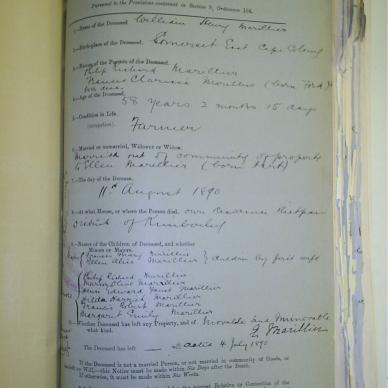 Pursuant to the Provisions contained in Section 9, Ordinance 104.
1.—Name of the Deceased William Henry Marillier
2.—Birth-place of the Deceased Somerset East Cape Colony
3.—Names of the Parents of the Deceased
Philip Richard Marillier
Francis Clarissa Marillier (born Ford)
4.—Age of the Deceased
58 Years 2 months 15 days
5.—Condition in Life.
(occupation) Farmer
6.—Married or unmarried, Widower or Widow.
Married out of community of property
to Ellen Marillier (born
7.—The day of the Decease.
11th August 1890
8.—At what House, or where the Person died. own Residence
District of Kimberley
9.—Names of the Children of Deceased, and whether
Minors or Majors.
Frances Mary Marillier
Ellen Alice Marillier } children by first wife
Philip Richard Marillier
Marillier
Edward Marillier
Hilda Harriet Marillier
Francis Robert Marillier
Margaret Emily Marillier
10.—Whether Deceased has left any Property, and of Movable and Immovable
what kind.
Marillier
The Deceased has left
Dated 4 July 1890
If the Deceased is not a married Person, or not married in community of Goods, or
Will:—this Notice must be made within Six Days after the Death.
If otherwise, it must be made within Six Weeks.
the nearest Relative or Connection of the